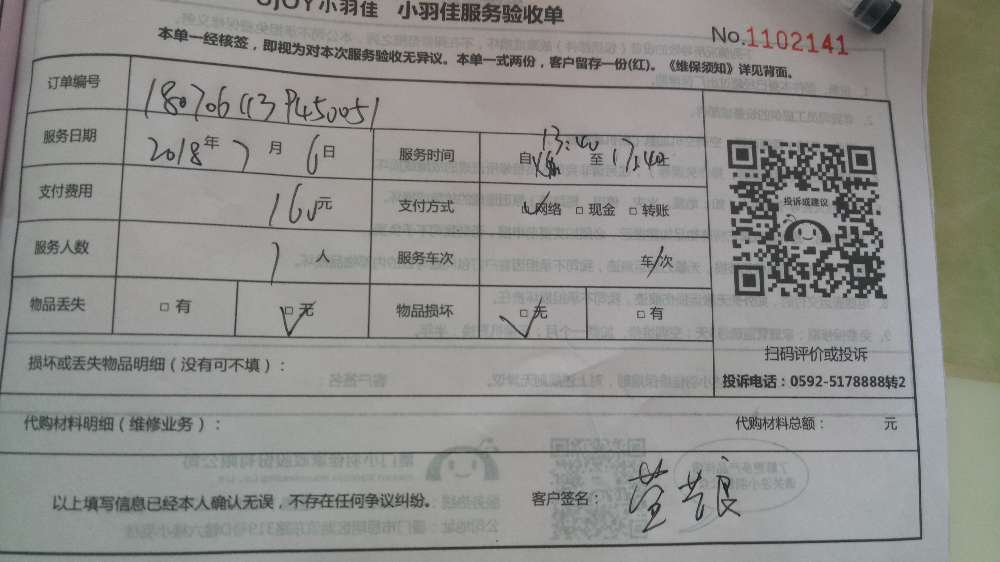 小羽佳 小羽佳服务验收单
No.1102141
本单一经核签，即视为对本次服务验收无异议。本单一式两份，客户留存一份(红)。《维保须知》详见背面。
订单编号
服务日期 2018年7月6日 服务时间 自13:40至17:40止
支付费用 160元 支付方式 □网络 □现金 □转账
服务人数 1人 服务车次 车/次
物品丢失 □有 □无 物品损坏 □无 □有
投诉或建议
扫码评价或投诉
投诉电话：0592-5178888转2
损坏或丢失物品明细（没有可不填）：
代购材料明细（维修业务）： 代购材料总额： 元
以上填写信息已经本人确认无误，不存在任何争议纠纷。 客户签名：